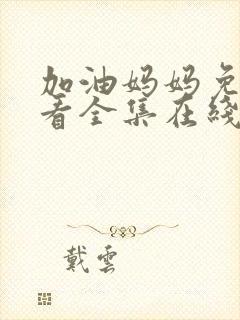 加油妈妈免
看全集在线
戴雲